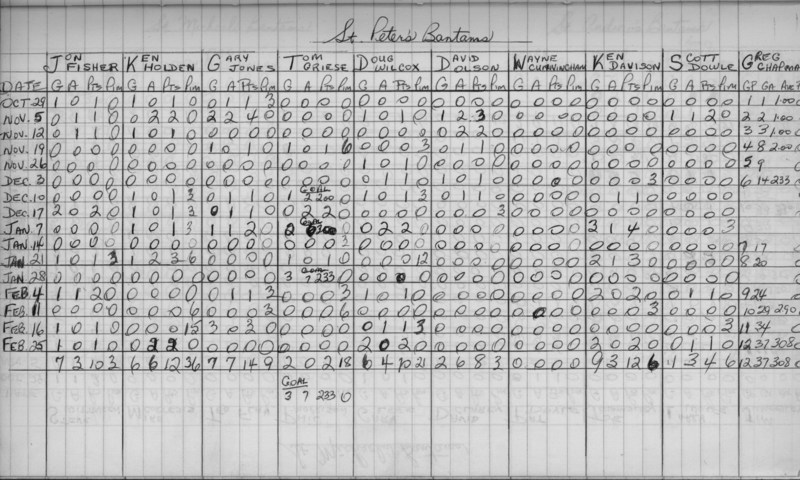 St. Peter's Bantams
JON FISHER KEN HOLDEN GARY JONES TOM GRIESE DOUG WILCOX DAVID OLSON WAYNE CUNNINGHAM KEN DAVISON SCOTT DOWLE GREG CHAPMAN
DATE G A Pts Pim G A Pts Pim G A Pts Pim G A Pts Pim G A Pts Pim G A Pts Pim G A Pts Pim G A Pts Pim G A Pts Pim GP GA Ave
OCT 29 1 0 1 0 1 0 1 0 0 1 1 3 0 0 0 0 0 0 0 0 0 0 0 0 0 0 0 0 0 0 0 0 0 0 0 0 1 1 100
NOV. 5 0 1 1 0 0 2 2 0 2 2 4 0 0 0 0 0 1 0 1 0 1 2 3 0 0 0 0 0 0 0 0 0 1 1 2 0 2 2 100
NOV. 12 0 1 1 0 1 0 1 0 0 0 0 0 0 0 0 0 0 0 0 0 0 2 2 0 0 0 0 0 0 0 0 0 0 0 0 0 3 3 100
NOV. 19 0 0 0 0 0 0 0 0 1 0 1 0 1 0 1 6 0 0 0 3 0 1 1 0 0 0 0 0 0 0 0 0 0 0 0 0 4 8 200
NOV. 26 0 0 0 0 0 0 0 0 0 0 0 0 0 0 0 0 1 0 1 0 0 0 0 0 0 0 0 0 0 0 0 0 0 0 0 0 5 9
DEC. 3 0 0 0 0 0 0 0 0 0 0 0 0 0 0 0 0 0 1 1 0 1 0 1 0 0 0 0 0 0 0 0 3 0 0 0 0 6 14 233
DEC. 10 0 0 0 0 1 0 1 3 0 1 1 0 1 GOAL 2 200 1 0 1 3 0 1 1 0 0 0 0 0 0 1 1 0 0 0 0 0
DEC. 17 2 0 2 0 1 0 1 3 0 1 1 0 0 2 2 0 0 0 0 0 0 0 0 3 0 0 0 0 0 0 0 0 0 0 0 0
JAN. 7 0 0 0 0 1 0 1 3 1 1 2 0 2 GOAL 300 0 2 2 0 0 0 0 0 0 0 0 0 3 1 4 0 0 0 0 3
JAN. 14 0 0 0 0 0 0 0 0 0 0 0 0 0 0 0 3 0 0 0 0 0 0 0 0 0 0 0 0 0 0 0 0 0 0 0 0 7 17
JAN 21 1 0 1 3 1 2 3 6 0 0 0 0 1 0 1 0 0 0 0 12 0 0 0 0 0 0 0 0 2 1 3 0 0 0 0 0 8 20
JAN. 28 0 0 0 0 0 0 0 0 0 0 0 0 3 GOAL 7 233 0 0 0 0 0 0 0 0 0 0 0 0 0 0 0 0 0 0 0 0 0
FEB. 4 1 1 2 0 0 0 0 0 0 1 1 3 0 0 0 3 1 0 1 0 0 0 0 0 0 0 0 0 2 0 2 0 0 1 1 0 9 24
FEB. 11 0 0 0 0 0 0 0 6 0 0 0 3 0 0 0 6 0 0 0 0 0 0 0 0 0 0 0 0 0 0 0 3 0 0 0 0 10 29 290
FEB. 16 1 0 1 0 0 0 0 15 3 0 3 0 0 0 0 0 0 1 1 3 0 0 0 0 0 0 0 0 0 0 0 0 0 0 0 3 11 34
FEB. 25 1 0 1 0 0 2 2 0 0 0 0 0 0 0 0 0 2 0 2 0 0 0 0 0 0 0 0 0 2 0 2 0 0 1 1 0 12 37 308
7 3 10 3 6 6 12 36 7 7 14 9 2 0 2 18 6 4 10 21 2 6 8 3 0 0 0 0 9 3 12 6 1 3 4 6 12 37 308
GOAL
3 7 233 0